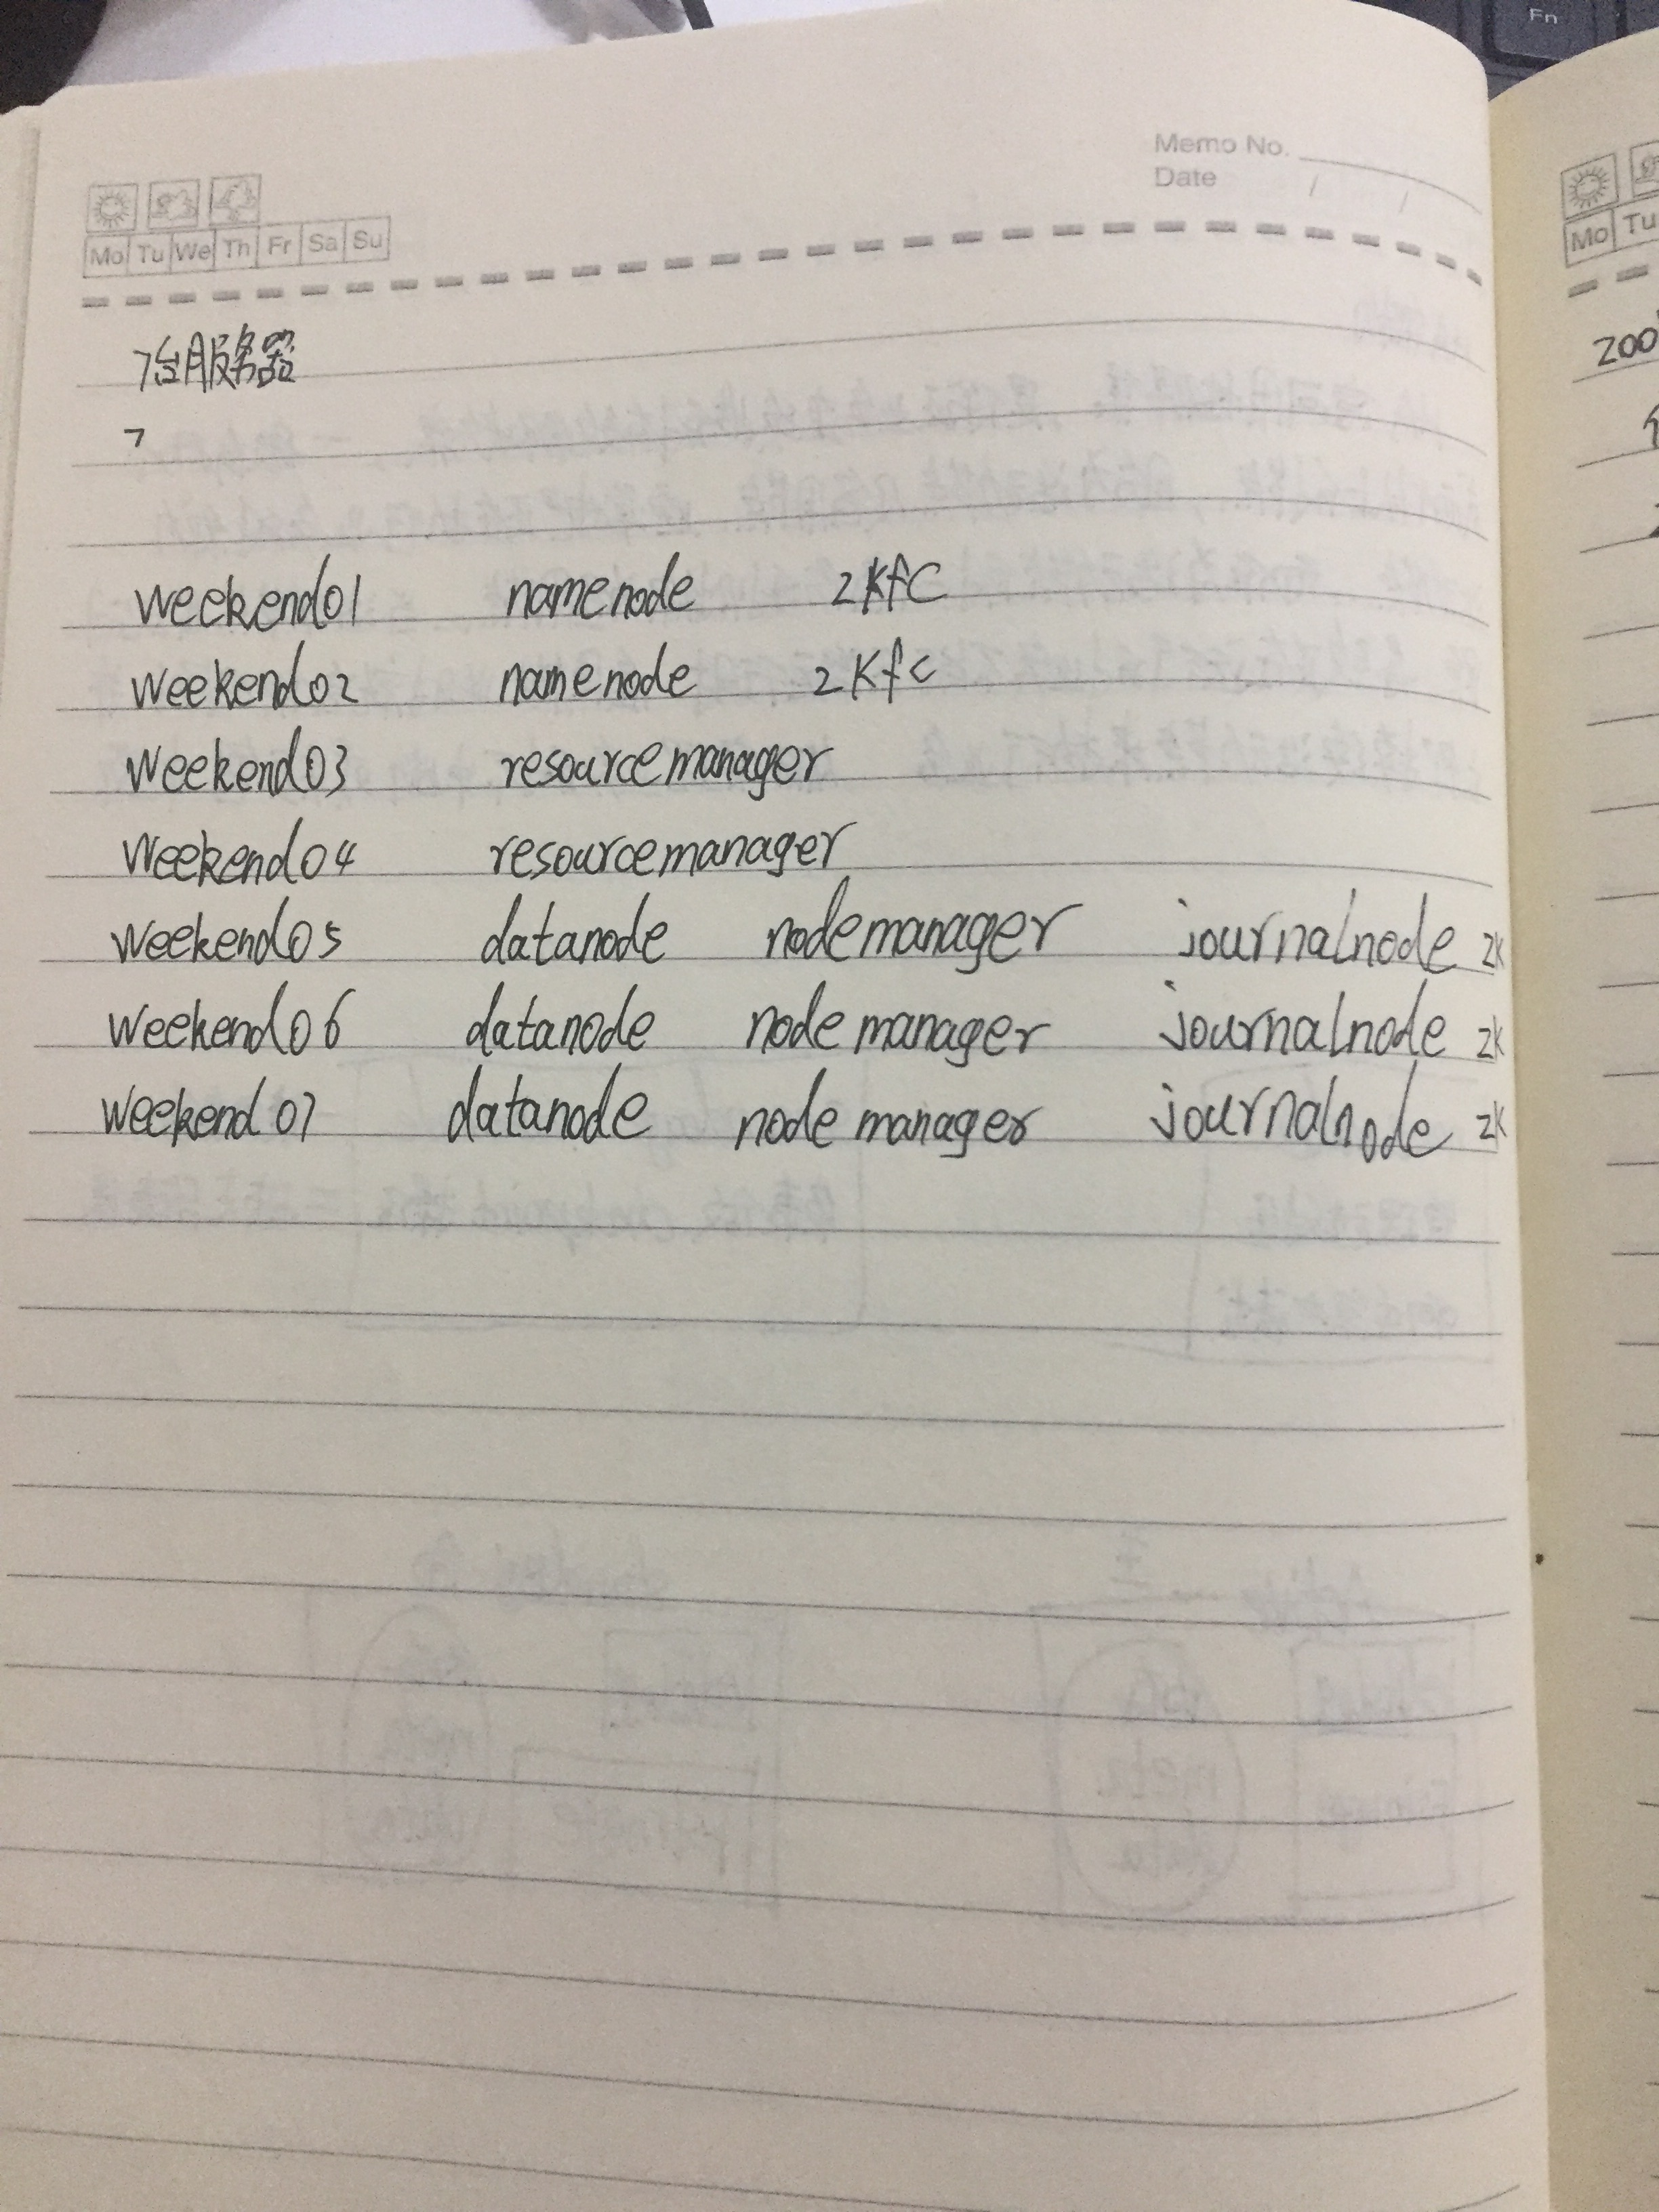 Fn
Memo No.
Date / /
Mo Tu We Th Fr Sa Su
Mo Tu
7台服务器
7
zoo
weekend01 namenode zkfC
weekend02 namenode zkfc
weekend03 resourcemanager
weekend04 resourcemanager
weekend05 datanode nodemanager journalnode zk
weekend06 datanode nodemanager journalnode zk
weekend07 datanode nodemanager journalnode zk